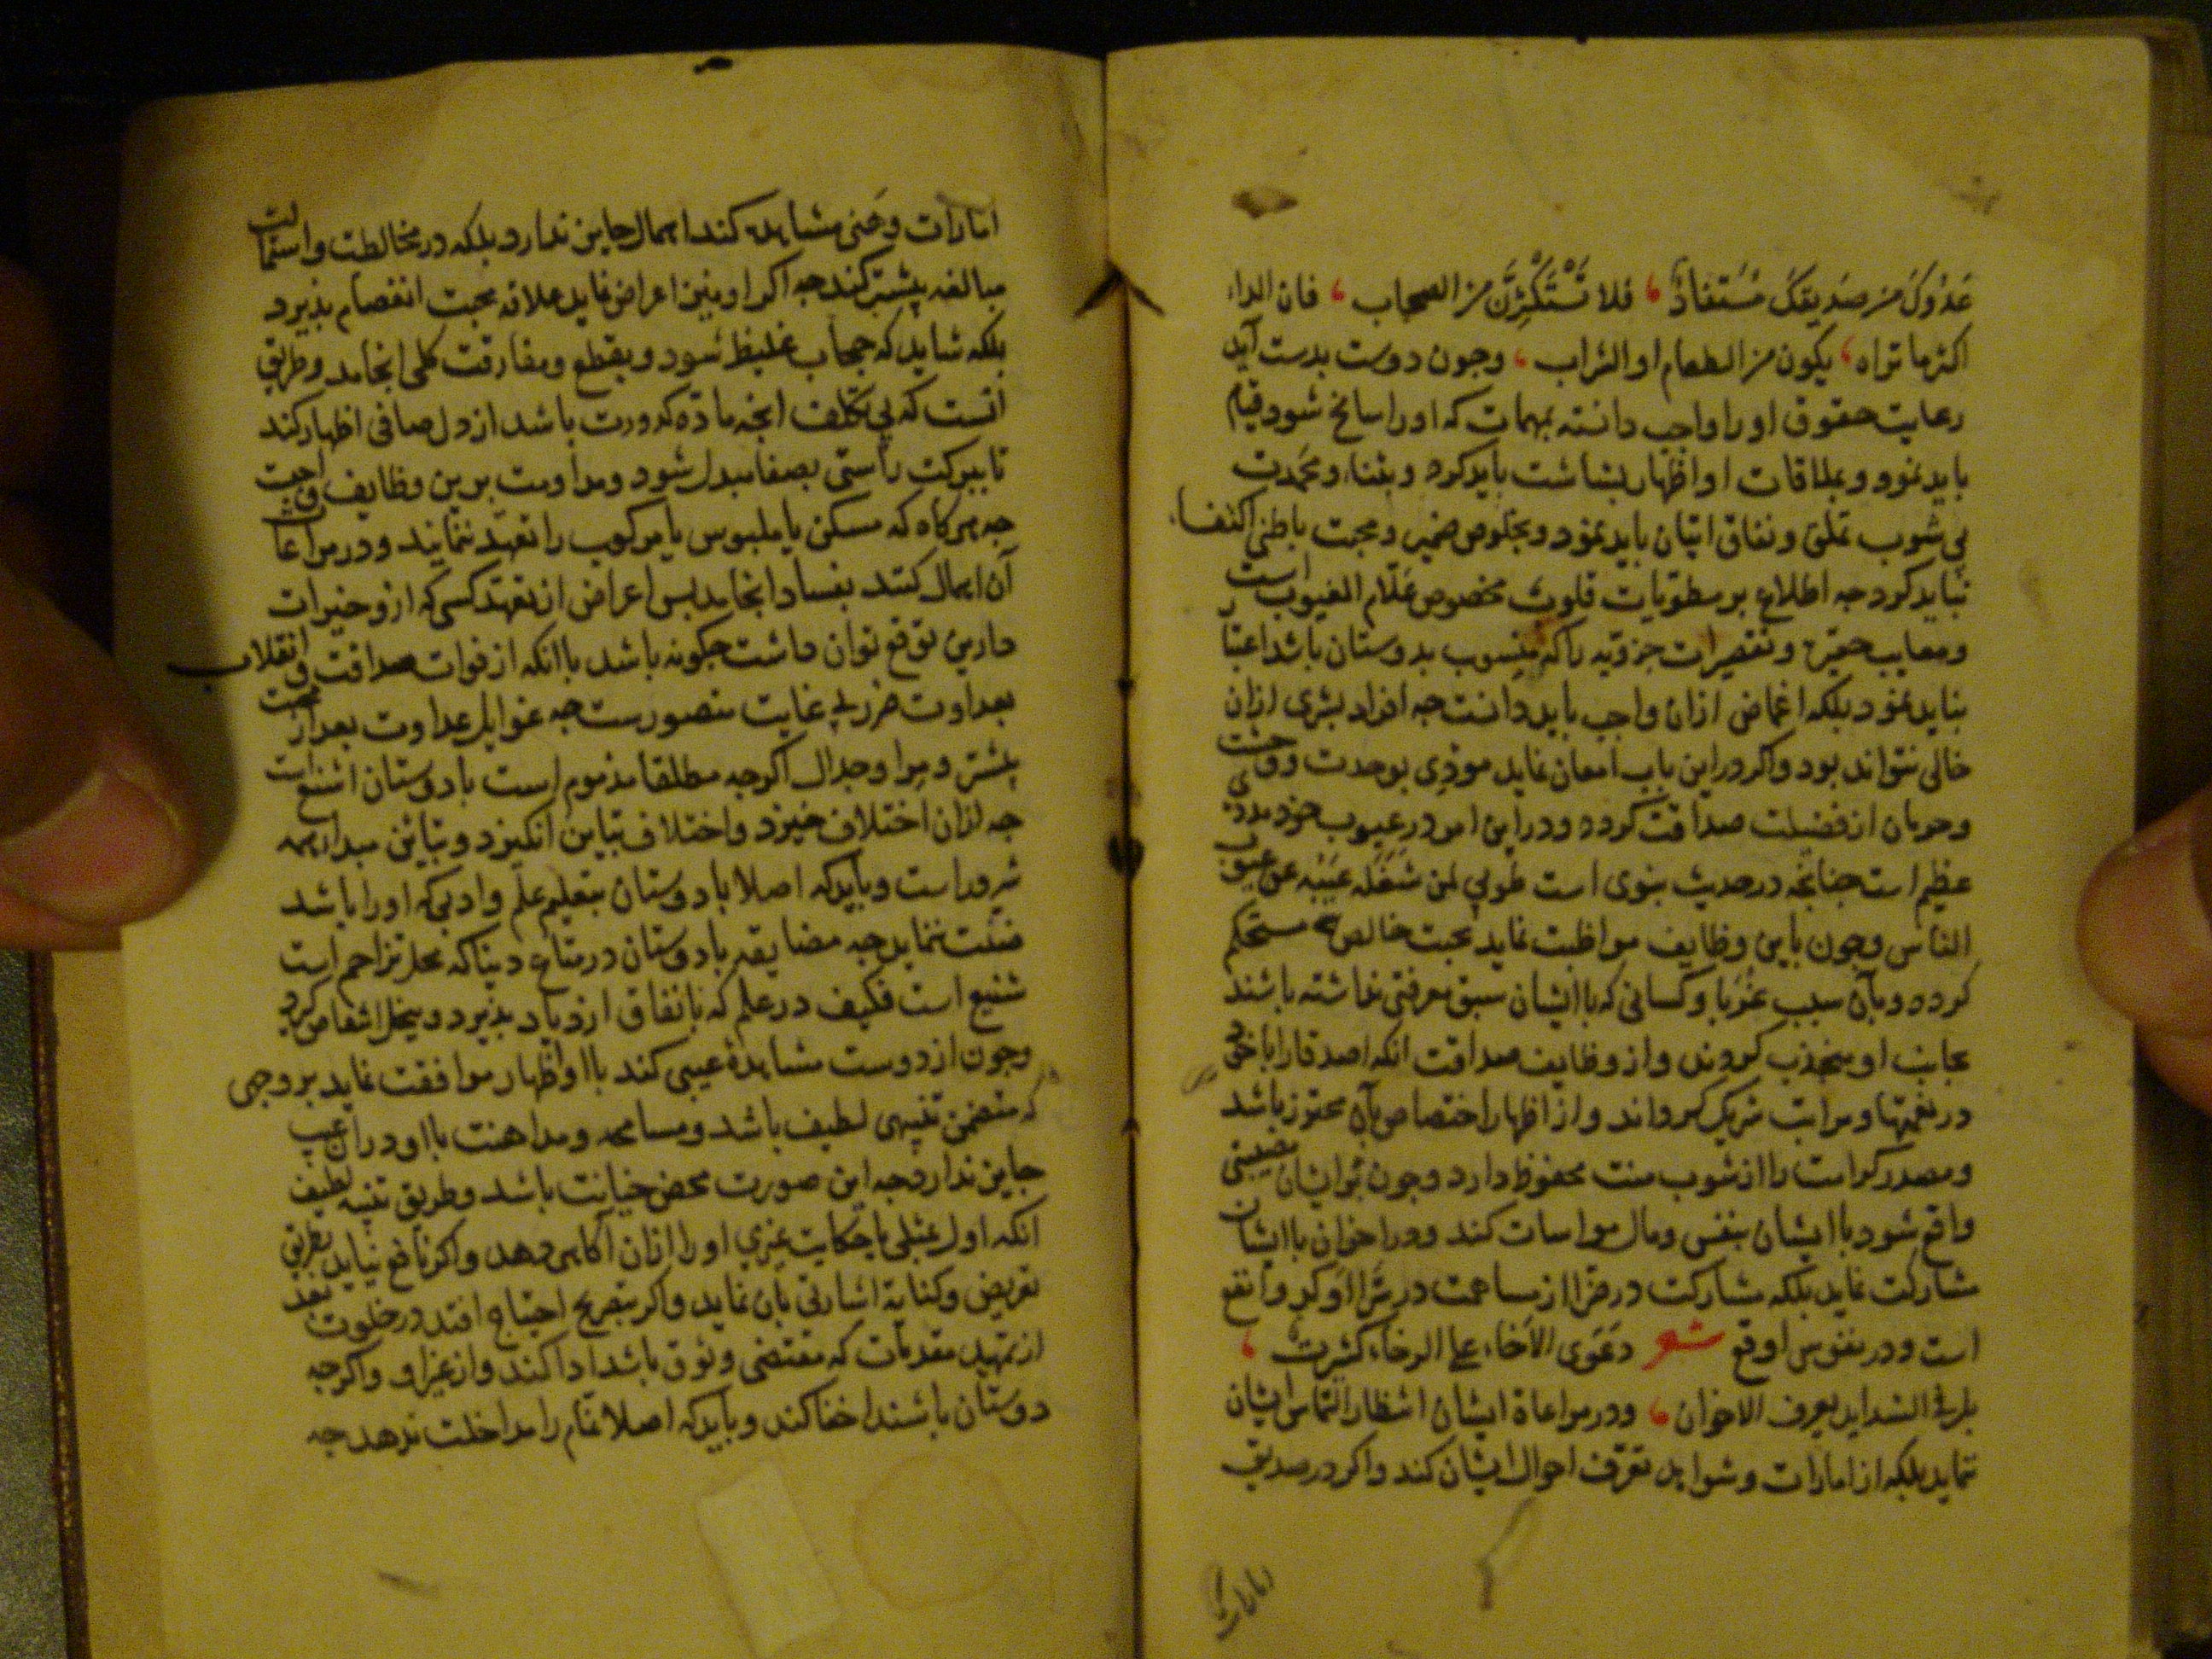 عَدُوُّكَ من صَدیقِکَ مُسْتَفادٌ فلا تَسْتَکْثِرَنَّ من الصحاب فان الداء
اکثر ما تراه یکون من الطعام او الشراب وجون دوست بدست آید
رعایت حقوق او را واجب دانسته بمهمات که او را سانح شود قیام
باید نمود و بملاقات او اظهار بشاشت باید کرد و بثناء ومحمدت
بی شوب تملق و نفاق اتیان باید نمود و بخلوص ضمیر و محبت باطنی اکتفاء
نباید کرد جه اطلاع بر مطویات قلوب مخصوص علّام الغیوب است
ومعایب حقیره و تقصیرات جزویه را که منسوب بدوستان باشد اعتبار
نباید نمود بلکه اغماض ازان واجب باید دانست جه افراد بشری ازان
خالی نتواند بود واکر در این باب امعان نماید مودی بوحدت و وحشت
وحرمان از فضیلت صداقت کرده ودر این امر در عیوب خود مددی
عظیم است جنانجه در حدیث نبوی است طوبی لمن شغله عیبه عن عیوب
الناس وجون باین وظایف مواظبت نماید محبت خالص مستحکم
کرده و بآن سبب غربا وکسانی که با ایشان سبق معرفتی نداشته باشند
بجانب او منجذب کردند واز وظایف صداقت انکه اصدقا را با خود
در نعمتها ومراتب شریک کرداند واز اظهار اختصاص بآن محترز باشد
ومصدر کرامت را از شوب منت محفوظ دارد وجون بر ایشان مصیبتی
واقع شود با ایشان بنفس ومال مواسات کند ودر احزان با ایشان
مشارکت نماید بلکه مشارکت در ضرّا از مساهمت در سرّا اوکد وانفع
است ودر نفوس اوقع شعر دعوی الاخاء علی الرخاء کثیرت
بل فی الشداید یعرف الاخوان ودر مراعاة ایشان انتظار التماس ایشان
ننماید بلکه از امارات و شواهد تعرّف احوال ایشان کند واکر در صدیق
امارات
امارات وحنی مشاهده کند اهمال جایز ندارد بلکه در مخالطت و استمالت
مبالغه بیشتر کند جه اکر او نیز اعراض نماید علاقه محبت انفصام بذیرد
بلکه شاید که حجاب غلیظ شود و بقطع ومفارقت کلی انجامد وطریق
انست که بی تکلف انجه ماده کدورت باشد از دل صافی اظهار کند
تا ببرکت راستی بصفا مبدل شود ومداومت برین وظایف واجبست
جه هرکاه که مسکن یا ملبوس یا مرکوب را تعهد ننمایند ودر مراعات
آن اهمال کنند بفساد انجامد بس اعراض از تعهد کسی که ازو خیرات
دارین توقع توان داشت جکونه باشد با انکه از فوات صداقت و انقلاب
بعداوت ضرر بی غایت متصورست جه غوایل عداوت بعد از محبت
بیشتر ومرا وجدال اکرجه مطلقا مذموم است با دوستان اشنع است
جه ازان اختلاف خیزد واختلاف تباین انکیزد و تباین مبدا همه
شروراست وباید که اصلا با دوستان بتعلیم علم وادبی که او را باشد
ضنّت ننماید جه مضایقه با دوستان در متاع دنیا که محل تزاحم است
شنیع است فکیف در علم که بانفاق ازدیاد بذیرد و ببخل انتقاص کیرد
وجون از دوست مشاهدهٔ عیبی کند با او اظهار موافقت نماید بر وجهی
که متضمن تنبیهی لطیف باشد ومسامحه ومداهنت با او در ان عیب
جایز ندارد جه این صورت محض خیانت باشد وطریق تنبیه لطیف
انکه اول بمثلی یا حکایت غیری او را ازان آکاهی دهد واکر نافع نیاید بطریق
تعریض وکنایة اشارتی بان نماید واکر بتصریح احتیاج افتد در خلوت بعد
از تمهید مقدمات که مقتضی وثوق باشد ادا کند واز غیر او واکرجه
دوستان باشند اخفا کند وباید که اصلا نمّام را مداخلت ندهد جه